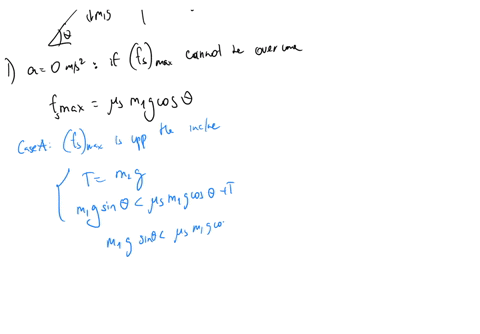 θ
1) a = 0 m/s² : if (fs)max cannot be overcome
fs max = μs m₁ g cos θ
Case A: (fs)max is upp the incline
T = m₂ g
m₁ g sin θ < μs m₁ g cos θ + T
m₁ g sin θ < μs m₁ g co